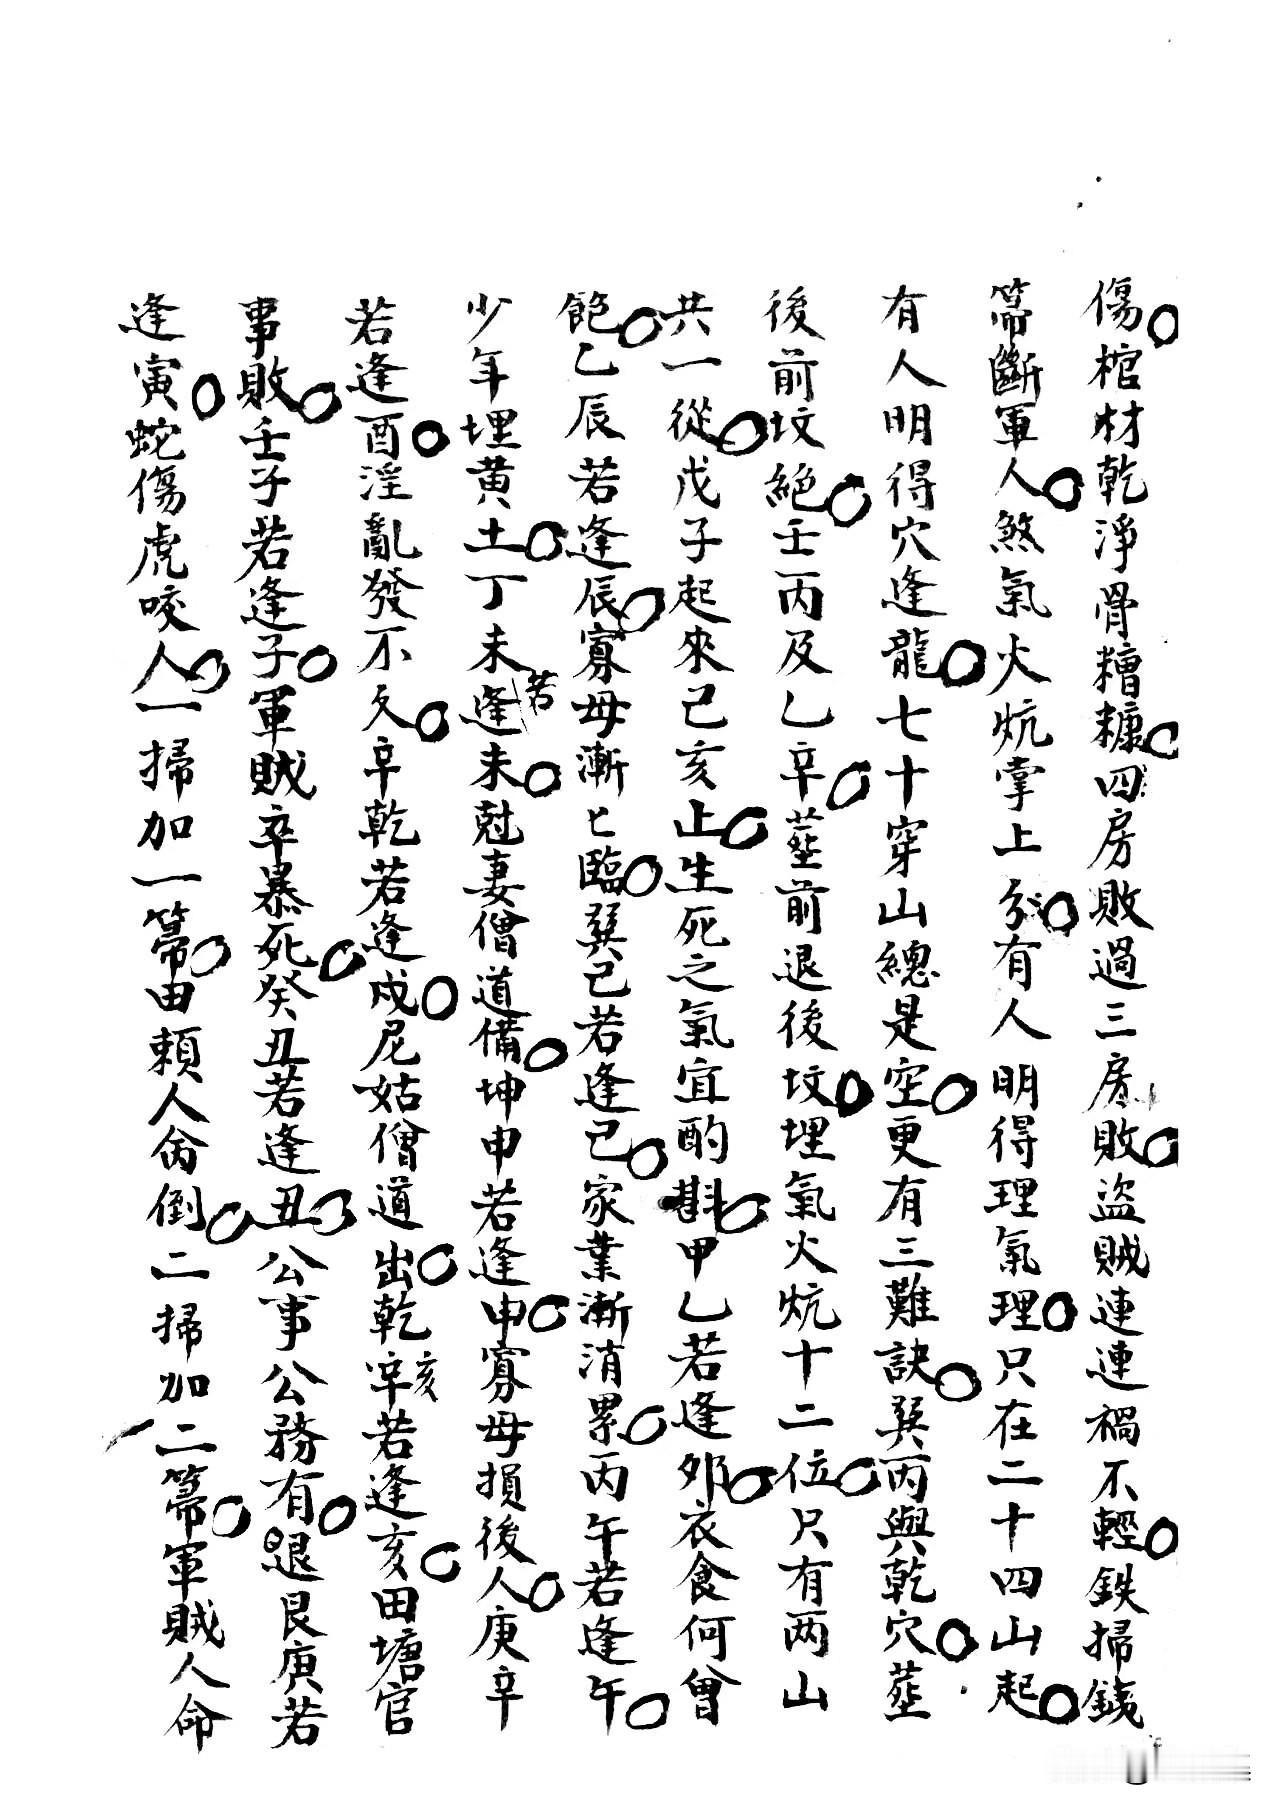 傷棺材乾淨骨糟糠四房敗過三房敗盜賊連連禍不輕鉄掃鉄
箒斷軍人煞氣火炕掌上分有人明得理氣理只在二十四山起
有人明得穴逢龍七十穿山總是空更有三難訣巽丙與乾穴塟
後前坟絕壬丙及乙辛塟前退後坟埋氣火炕十二位只有两山
共一從戊子起來己亥止生死之氣宜酌斟甲乙若逢夘衣食何曾
飽乙辰若逢辰寡母漸匕臨巽已若逢已家業漸消累丙午若逢午
少年埋黄土丁未若逢未尅妻僧道備坤申若逢申寡母損後人庚辛
若逢酉淫亂發不久辛乾若逢戍尼姑僧道出乾亥若逢亥田塘官
事敗壬子若逢子軍賊卒暴死癸丑若逢丑公事公務有退艮寅若
逢寅蛇傷虎咬人一掃加一箒田頼人命倒二掃加二箒軍賊人命